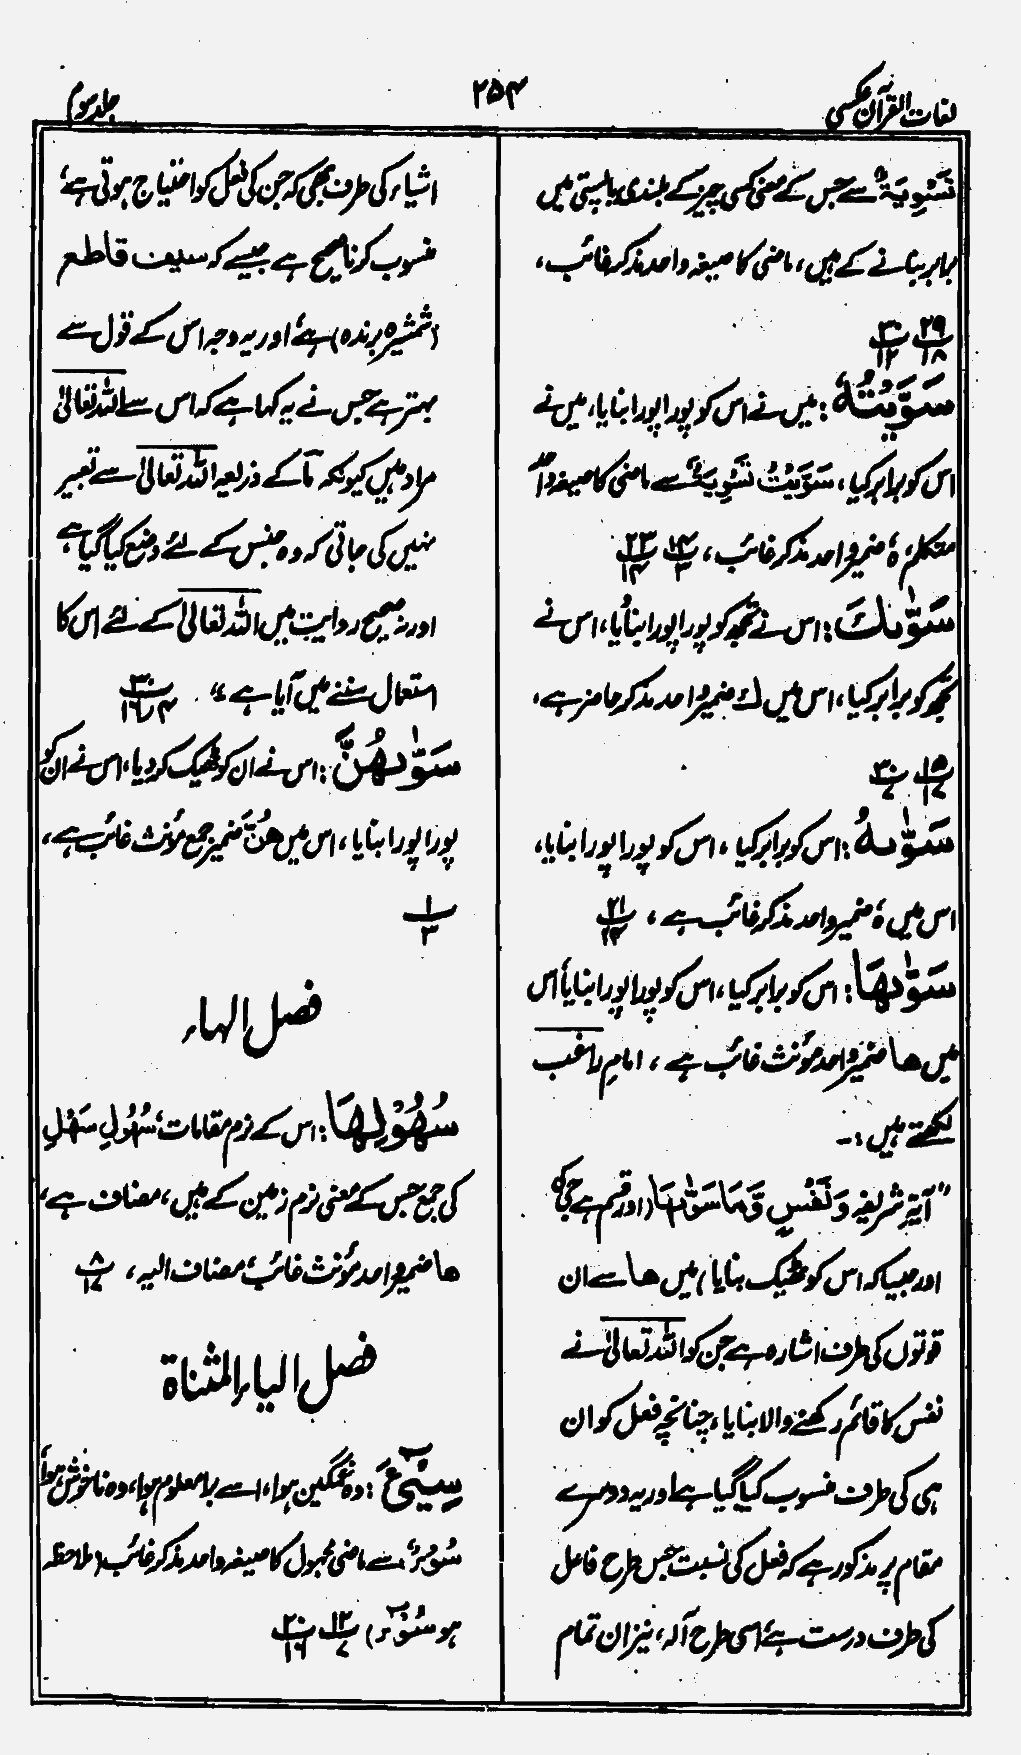 لغات القرآن عکسی
۲۵۴
جلد سوم
تَسْوِيَةٌ سے جس کے معنی کسی چیز کے بلندی یا پستی میں
برابر بنانے کے ہیں، ماضی کا صیغہ واحد مذکر غائب،
۲۹/۱۸ ۳۰/۱۲
سَوَّيْتُهٗ: میں نے اس کو پورا پورا بنایا، میں نے
اس کو برابر کیا، سَوَّيْتُ تَسْوِيَةٌ سے ماضی کا صیغہ واحد
متکلم، ہٗ ضمیر واحد مذکر غائب، ۱۴/۳ ۲۳/۱۴
سَوّٰىكَ: اس نے تجھ کو پورا پورا بنایا، اس نے
تجھ کو برابر کیا، اس میں ك ضمیر واحد مذکر حاضر ہے،
۱۵/۱۷ ۳۰/۷
سَوّٰىهُ: اس کو برابر کیا، اس کو پورا پورا بنایا،
اس میں ہٗ ضمیر واحد مذکر غائب ہے، ۲۱/۱۴
سَوّٰىهَا: اس کو برابر کیا، اس کو پورا پورا بنایا، اس
میں ھا ضمیر واحد مؤنث غائب ہے، امام راغب
لکھتے ہیں:۔
"آیۂ شریفہ وَنَفْسٍ وَّمَا سَوّٰىهَا (اور قسم ہے جی کی
اور جیسا کہ اس کو ٹھیک بنایا) میں ھا سے ان
قوتوں کی طرف اشارہ ہے جن کو اللہ تعالیٰ نے
نفس کا قائم رکھنے والا بنایا، چنانچہ فعل کو ان
ہی کی طرف منسوب کیا گیا ہے اور یہ دوسرے
مقام پر مذکور ہے کہ فعل کی نسبت جس طرح فاعل
کی طرف درست ہے اسی طرح آلہ، نیز ان تمام
اشیاء کی طرف بھی کہ جن کی فعل کو احتیاج ہوتی ہے،
منسوب کرنا صحیح ہے جیسے کہ سیف قاطع
(شمشیر برندہ) ہے، اور یہ وجہ اس کے قول سے
بہتر ہے جس نے یہ کہا ہے کہ اس سے اللہ تعالیٰ
مراد ہیں کیونکہ مَا کے ذریعہ اللہ تعالیٰ سے تعبیر
نہیں کی جاتی کہ وہ جنس کے لئے وضع کیا گیا ہے،
اور نہ صحیح روایت میں اللہ تعالیٰ کے لئے اس کا
استعمال سننے میں آیا ہے،" ۳۰/۱۶،۴
سَوّٰىهُنَّ: اس نے ان کو ٹھیک کر دیا، اس نے ان کو
پورا پورا بنایا، اس میں ھُنَّ ضمیر جمع مؤنث غائب ہے،
۱/۳
فصل الہاء
سُهُوْلِهَا: اس کے نرم مقامات، سُهُوْلِ سَهْلٍ
کی جمع جس کے معنی نرم زمین کے ہیں، مضاف ہے،
ھا ضمیر واحد مؤنث غائب، مضاف الیہ، ۸/۱۷
فصل الیاء المثناة
سِيْٓءَ: وہ غمگین ہوا، اسے برا معلوم ہوا، وہ ناخوش ہوا،
سُوْءٌ سے ماضی مجہول کا صیغہ واحد مذکر غائب (ملاحظہ
ہو سُوْٓءٌ) ۱۲/۷ ۲۰/۱۶